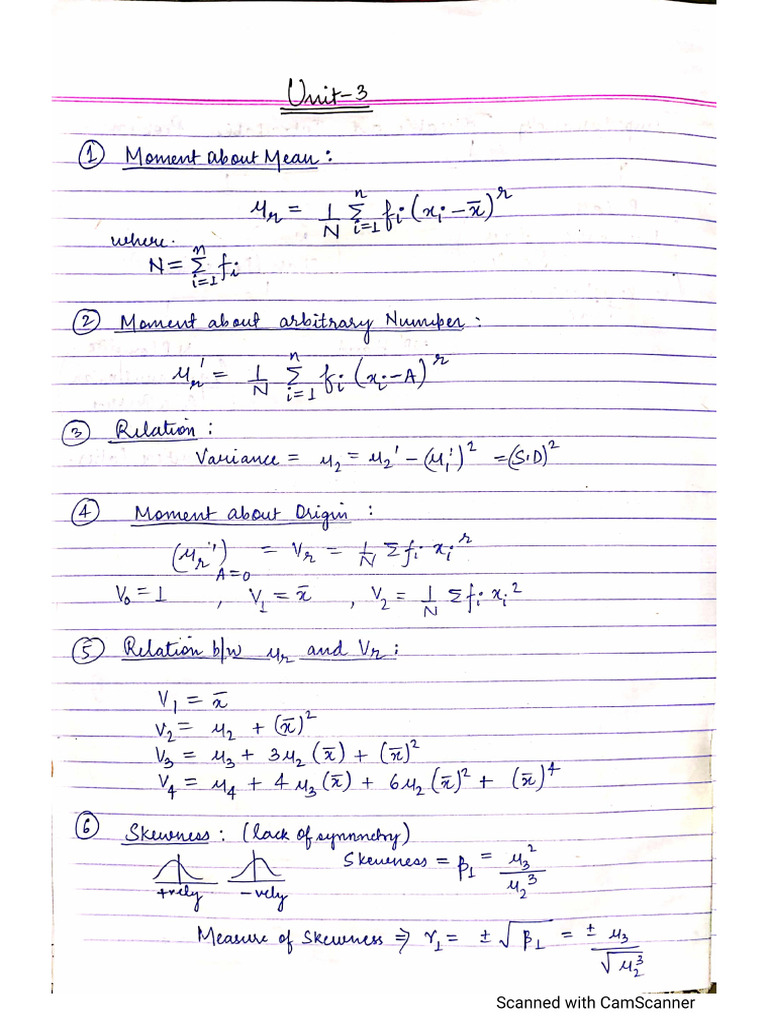 Unit-3
① Moment about Mean :
μr = 1/N Σ_{i=1}^{n} fi (xi - x̄)^r
where.
N = Σ_{i=1}^{n} fi
② Moment about arbitrary Number :
μr' = 1/N Σ_{i=1}^{n} fi (xi - A)^r
③ Relation :
Variance = μ2 = μ2' - (μ1')^2 = (S.D)^2
④ Moment about Origin :
(μr')_{A=0} = Vr = 1/N Σ fi xi^r
V0 = 1 , V1 = x̄ , V2 = 1/N Σ fi xi^2
⑤ Relation b/w μr and Vr :
V1 = x̄
V2 = μ2 + (x̄)^2
V3 = μ3 + 3μ2 (x̄) + (x̄)^2
V4 = μ4 + 4μ3 (x̄) + 6μ2 (x̄)^2 + (x̄)^4
⑥ Skewness : (lack of symmetry)
Skewness = β1 = μ3^2 / μ2^3
+vely -vely
Measure of Skewness ⇒ γ1 = ± √β1 = ± μ3 / √μ2^3
Scanned with CamScanner